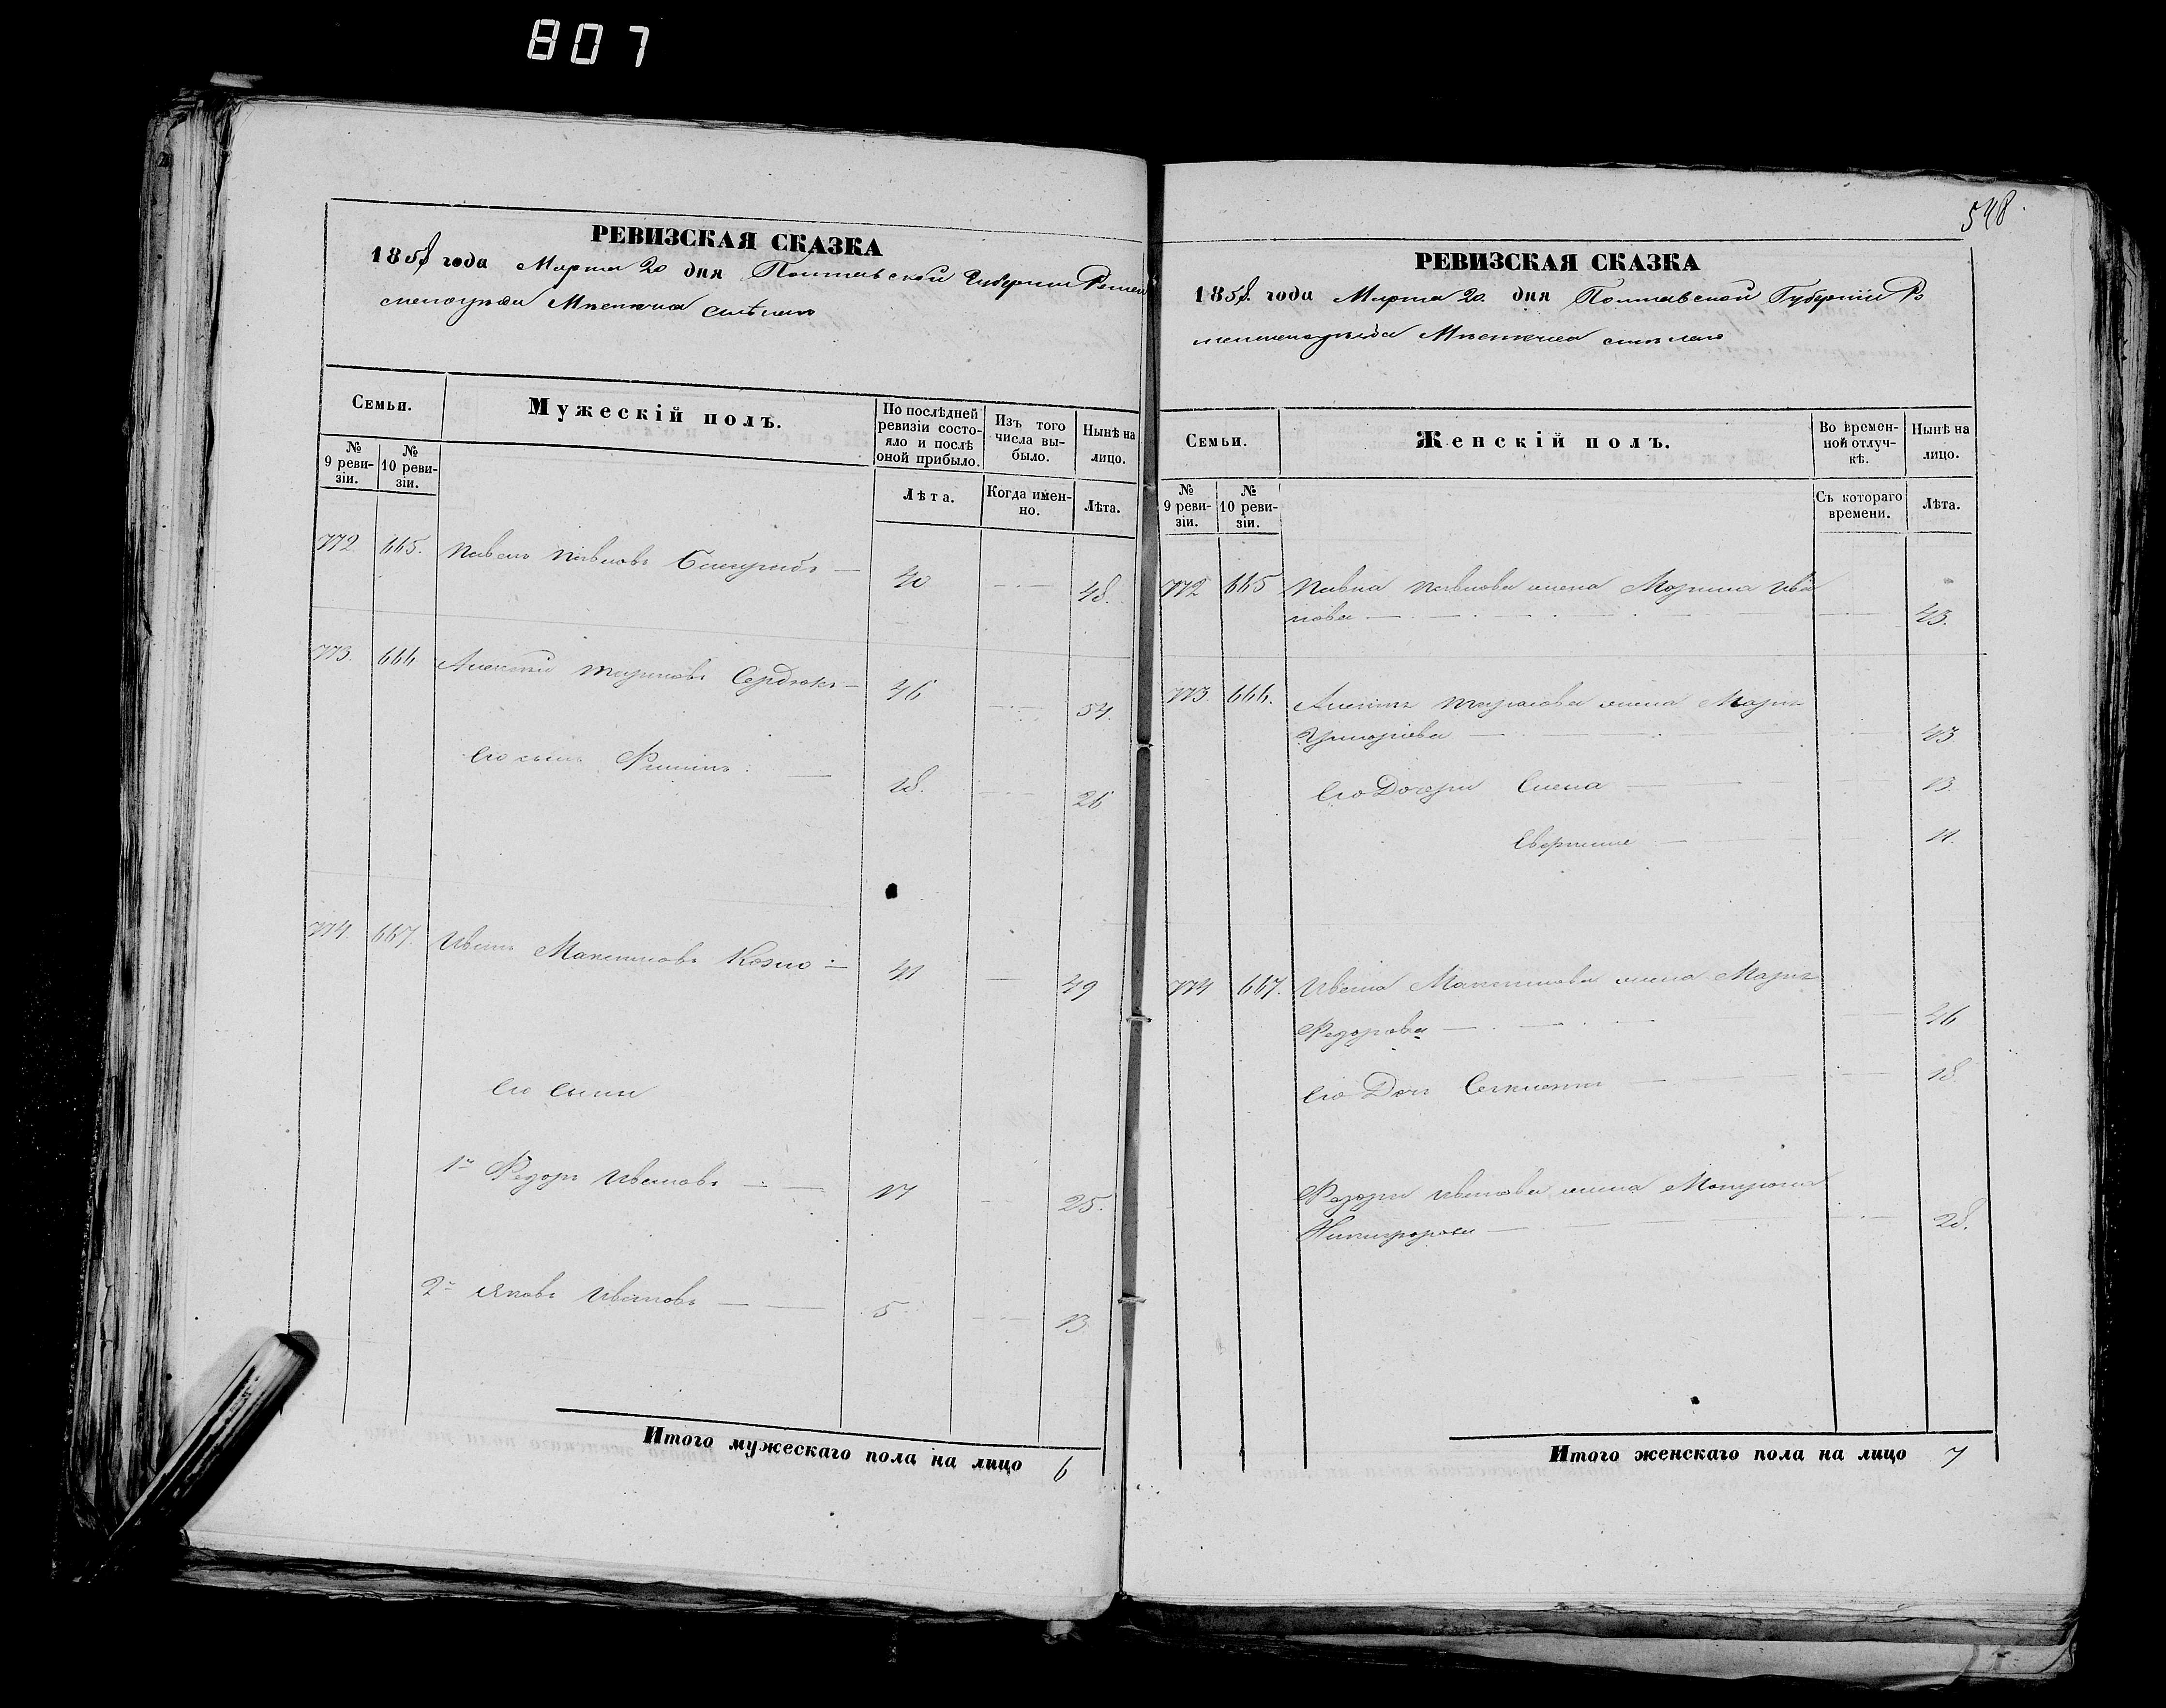 807
РЕВИЗСКАЯ СКАЗКА
1858 года Марта 20 дня Полтавской Губернии Ромен
Семьи.
Мужескій полъ.
По послѣдней ревизіи состояло и послѣ оной прибыло.
Изъ того числа выбыло.
Нынѣ на лицо.
№ 9 ревизіи.
№ 10 ревизіи.
Лѣта.
Когда именно.
Лѣта.
772 665. Павелъ Павловъ 40 48.
773. 666 Алексѣй Тарасовъ Сердюкъ 46 54.
Его сынъ Филипъ 18. 26
774. 667. Иванъ Максимовъ Козло 41 49
Его сыны
1й Федоръ Ивановъ 17 25.
2й Яковъ Ивановъ 5 13.
Итого мужескаго пола на лицо 6
548.
РЕВИЗСКАЯ СКАЗКА
1858. года Марта 20. дня Полтавской Губерніи Ро
Семьи.
Женскій полъ.
Во временной отлучкѣ.
Нынѣ на лицо.
№ 9 ревизіи.
№ 10 ревизіи.
Съ котораго времени.
Лѣта.
772 665 Павла Павлова жена Марина Ива
нова 43.
773. 666. Тарасова жена Марія
Григоріева 43
Его Дочери Елена 13.
11.
774 667. Ивана Максимова жена Марія
Федорова 46
Его Дочь 18.
Федора Иванова жена
Никифорова 28.
Итого женскаго пола на лицо 7